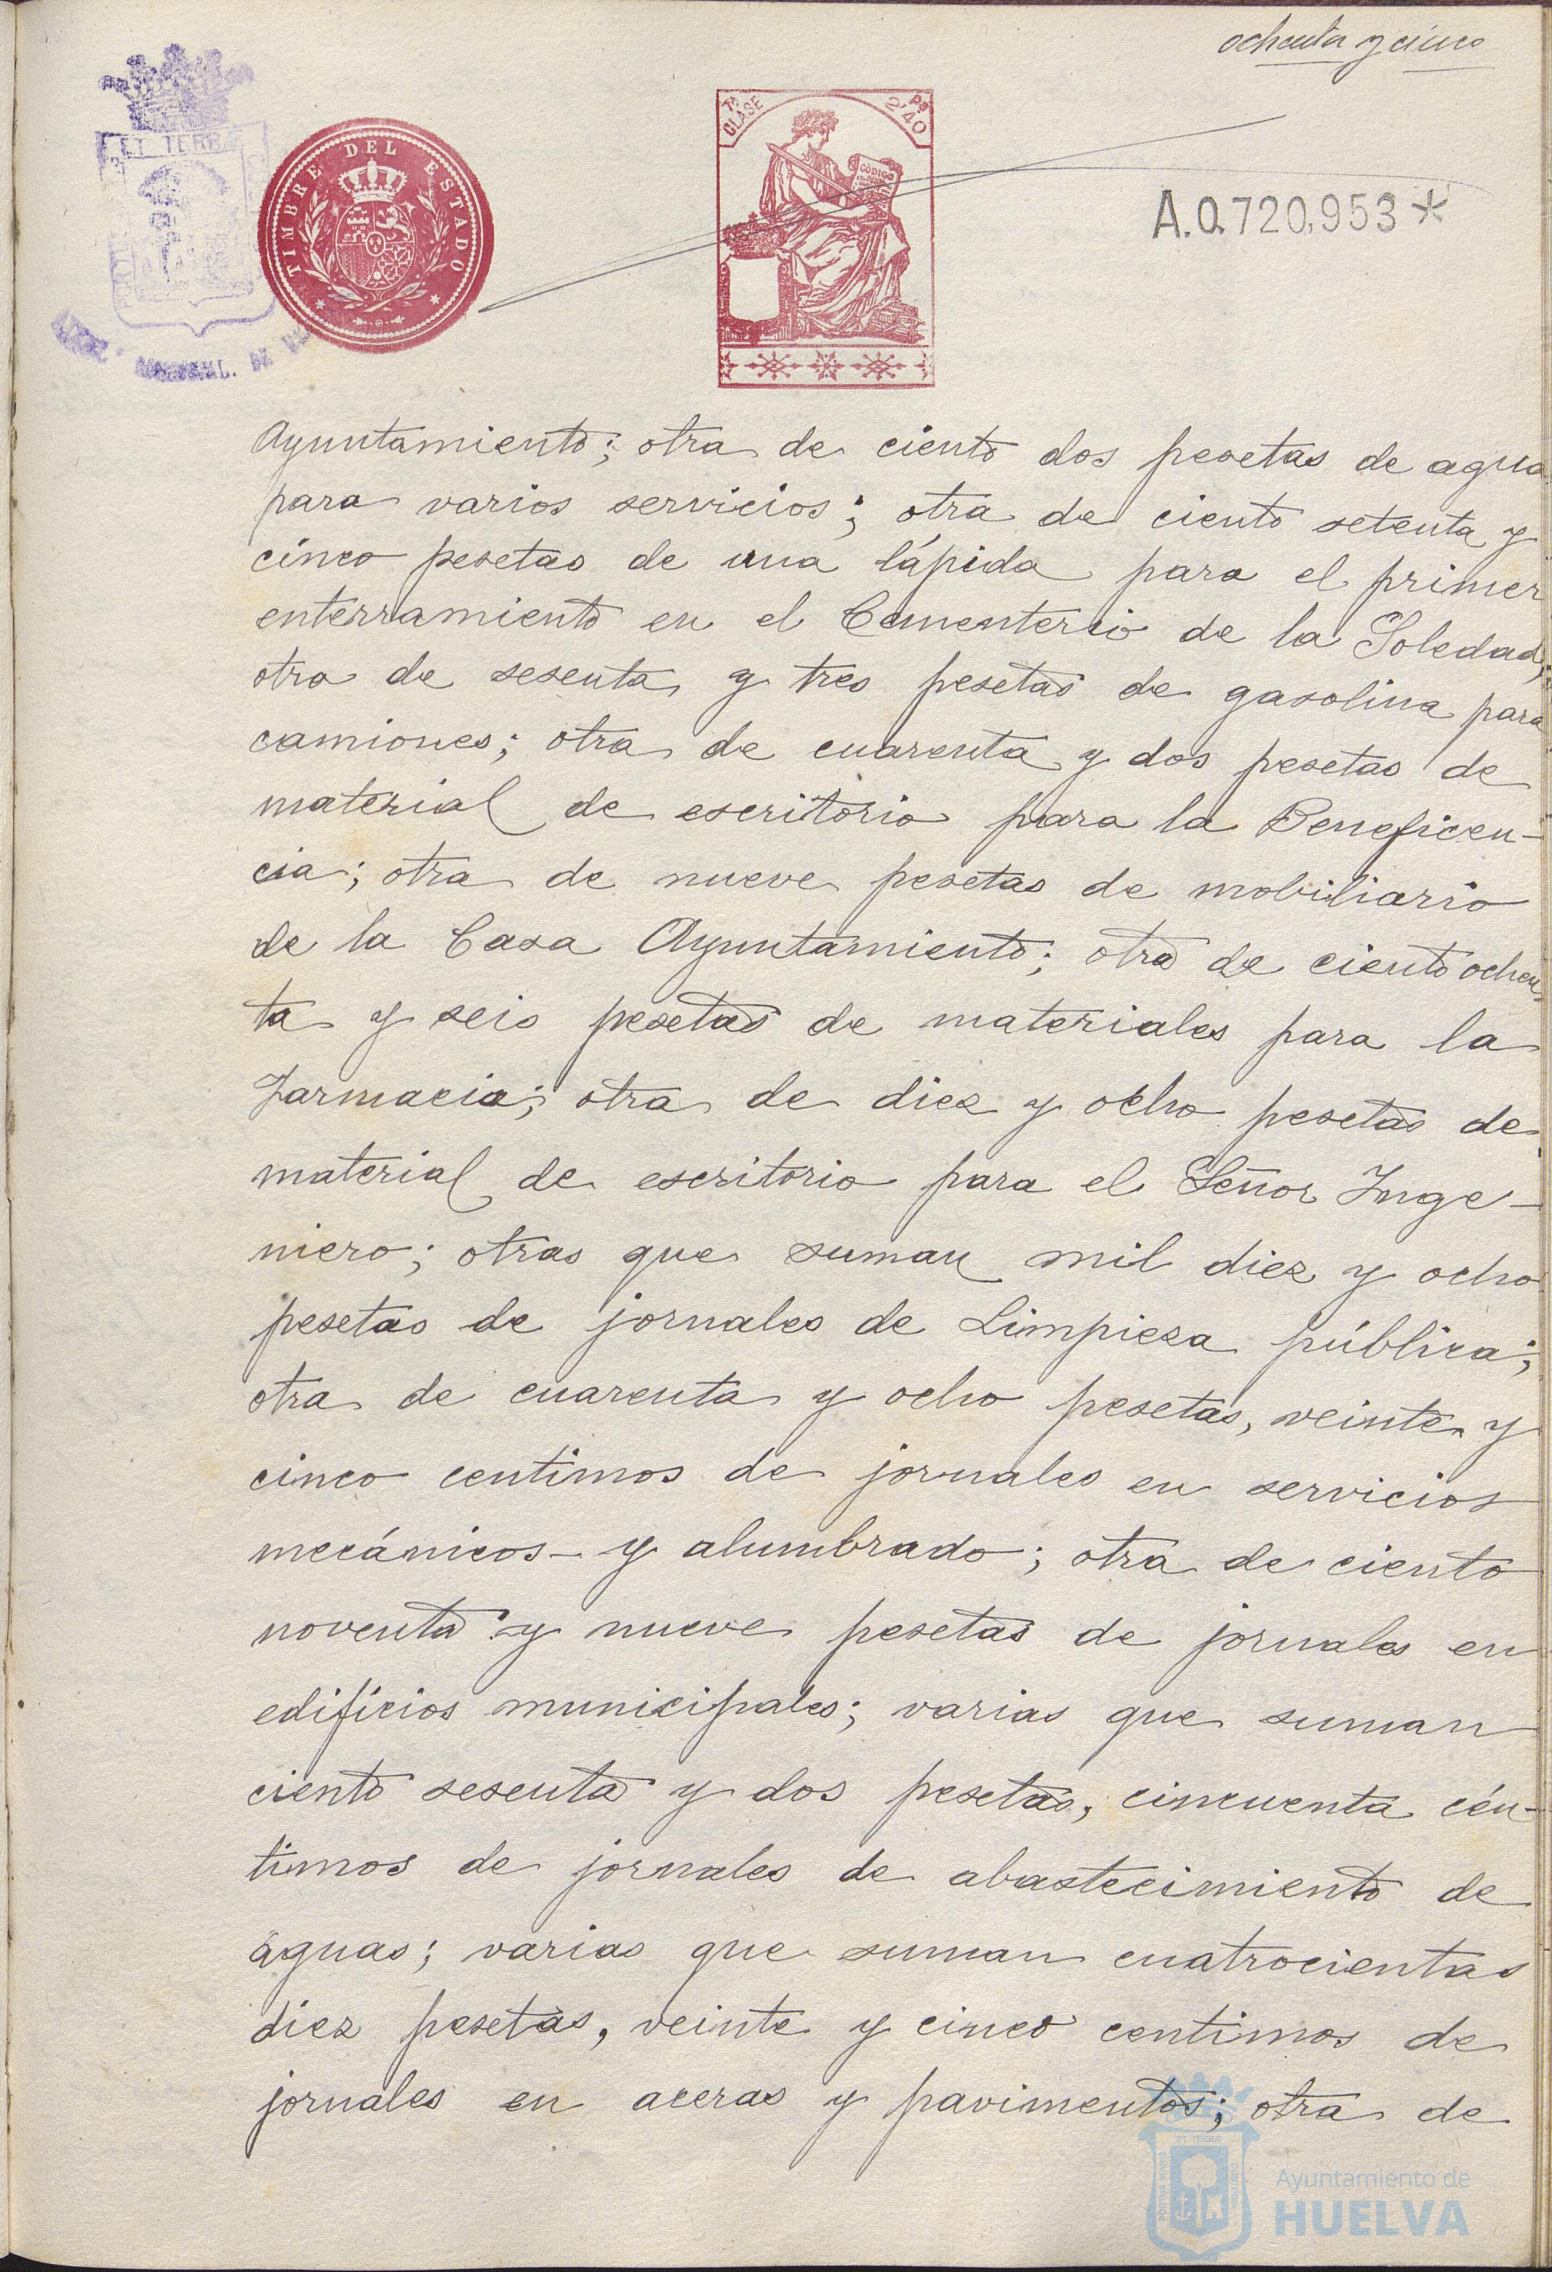 ochenta y cinco
ET TERRÆ
TIMBRE DEL ESTADO
7ª CLASE
Ps 2'40
CODIGO
A.0.720,953*
Ayuntamiento; otra de ciento dos pesetas de agua
para varios servicios; otra de ciento setenta y
cinco pesetas de una lápida para el primer
enterramiento en el Cementerio de la Soledad;
otra de sesenta y tres pesetas de gasolina para
camiones; otra de cuarenta y dos pesetas de
material de escritorio para la Beneficen-
cia; otra de nueve pesetas de mobiliario
de la Casa Ayuntamiento; otra de ciento ochen
ta y seis pesetas de materiales para la
Farmacia; otra de diez y ocho pesetas de
material de escritorio para el Señor Inge-
niero; otras que suman mil diez y ocho
pesetas de jornales de Limpieza pública;
otra de cuarenta y ocho pesetas, veinte y
cinco centimos de jornales en servicios
mecánicos- y alumbrado; otra de ciento
noventa y nueve pesetas de jornales en
edificios municipales; varias que suman
ciento sesenta y dos pesetas, cincuenta cén-
timos de jornales de abastecimiento de
aguas; varias que suman cuatrocientas
diez pesetas, veinte y cinco centimos de
jornales en aceras y pavimentos; otra de
Ayuntamiento de
HUELVA